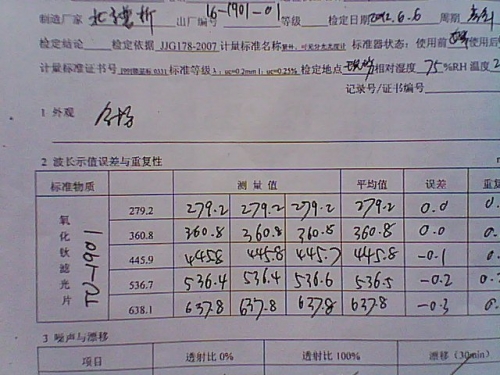 制造厂家 北京普析 出厂编号 16-1901-01 等级 检定日期 2012.6.6 周期
检定结论 检定依据 JJG178-2007 计量标准名称 紫外、可见分光光度计 标准器状态：使用前 使用后
计量标准证书号 标准等级 检定地点 相对湿度 75 %RH 温度 2
记录号/证书编号
1 外观 合格
2 波长示值误差与重复性
标准物质 测量值 平均值 误差 重复
氧化钬滤光片 TU-1901
279.2 279.2 279.2 279.2 279.2 0.0 0.
360.8 360.8 360.8 360.8 360.8 0.0 0.
445.9 445.8 445.8 445.7 445.8 -0.1 0.
536.7 536.4 536.4 536.6 536.5 -0.2 0.
638.1 637.8 637.8 637.8 637.8 -0.3 0.
3 噪声与漂移
项目 透射比 0% 透射比 100% 漂移 (30min)